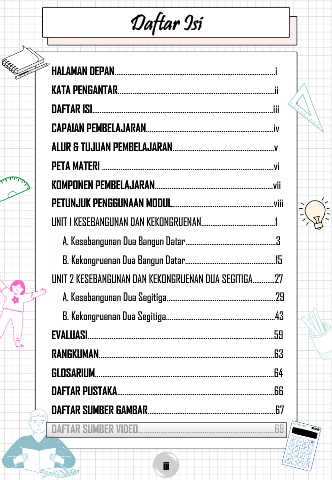 Daftar Isi
HALAMAN DEPAN....................i
KATA PENGANTAR....................ii
DAFTAR ISI....................iii
CAPAIAN PEMBELAJARAN....................iv
ALUR & TUJUAN PEMBELAJARAN....................v
PETA MATERI....................vi
KOMPONEN PEMBELAJARAN....................vii
PETUNJUK PENGGUNAAN MODUL....................viii
UNIT 1 KESEBANGUNAN DAN KEKONGRUENAN....................1
A. Kesebangunan Dua Bangun Datar....................3
B. Kekongruenan Dua Bangun Datar....................15
UNIT 2 KESEBANGUNAN DAN KEKONGRUENAN DUA SEGITIGA..........27
A. Kesebangunan Dua Segitiga....................29
B. Kekongruenan Dua Segitiga....................43
EVALUASI....................59
RANGKUMAN....................63
GLOSARIUM....................64
DAFTAR PUSTAKA....................66
DAFTAR SUMBER GAMBAR....................67
DAFTAR SUMBER VIDEO....................69
iii